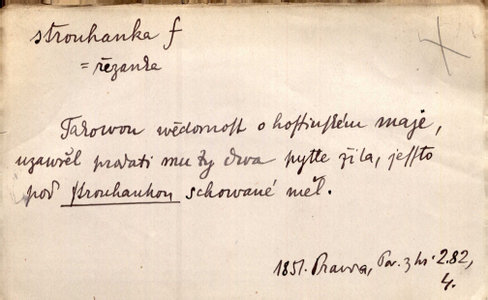 strouhanka f
= řezanka
Takowou wědomost o hostinském maje,
uzawřel prodati mu ty dwa pytle žita, jessto
pod strouhankou schowané měl.
1851. Prawda, Pov. z hs. 2.82,
4.